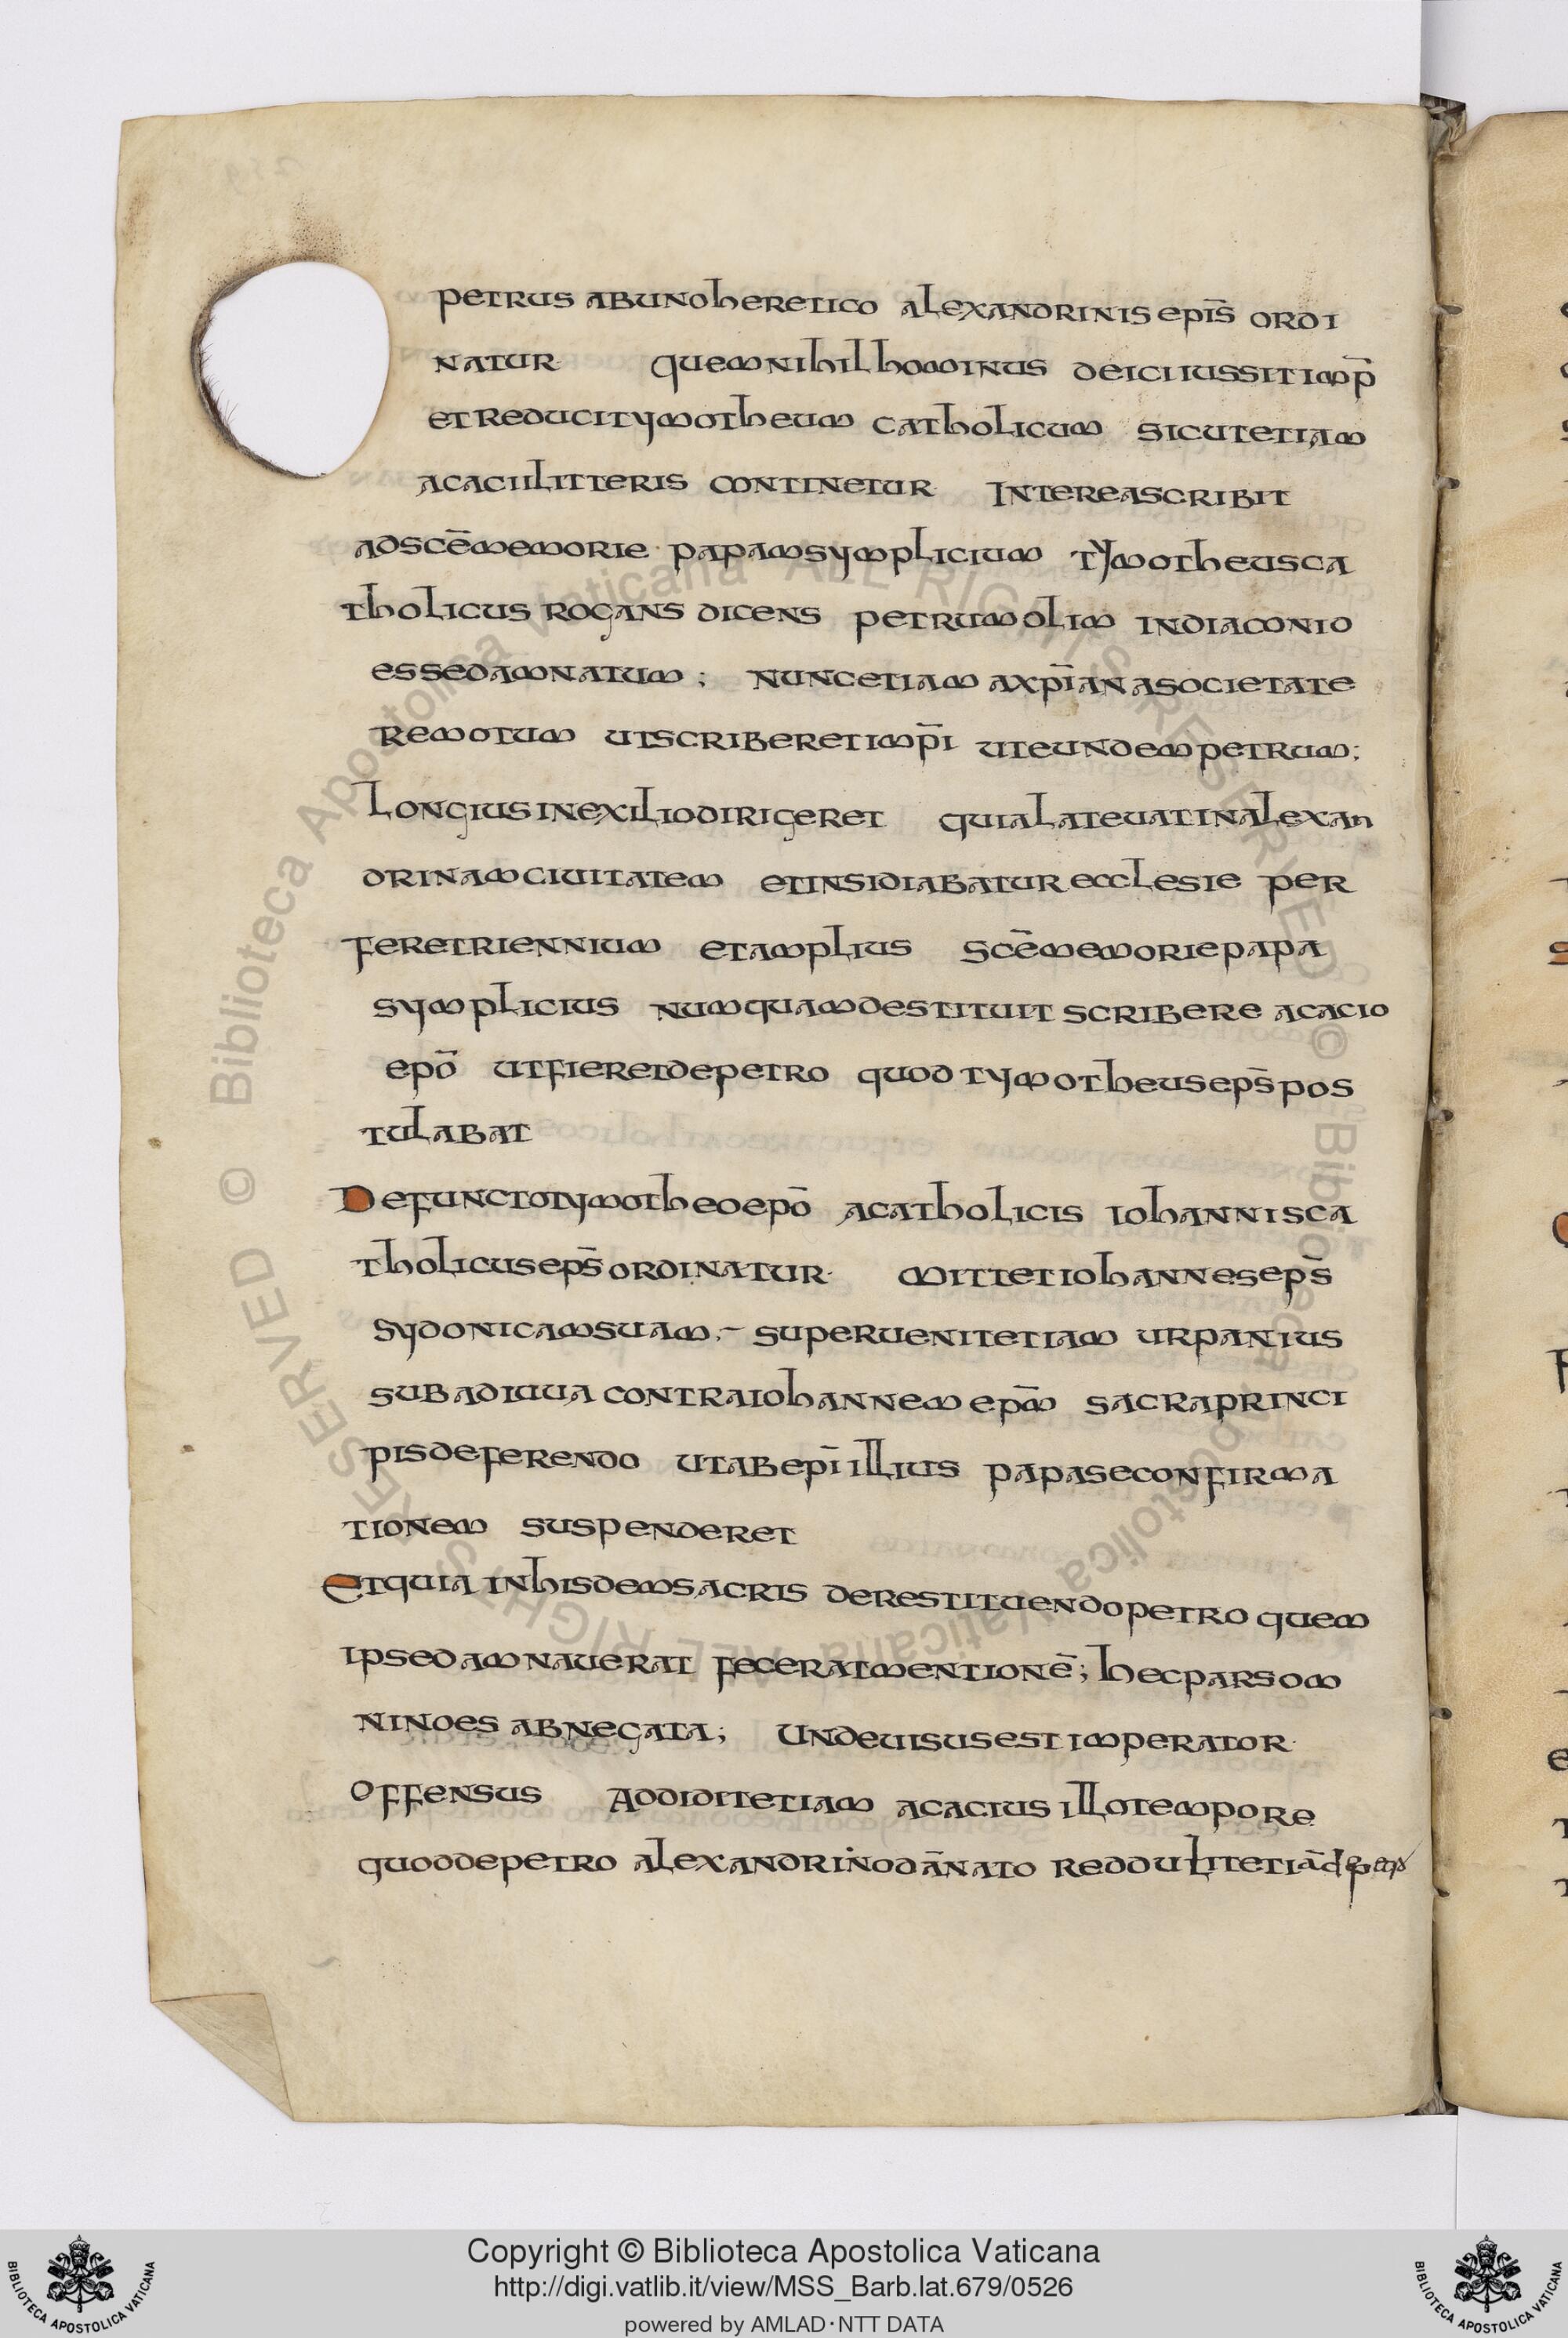 petrus ab uno heretico alexandrinis ep̄is ordi
natur quem nihilhominus deici iussit imp̄
et reduci tymotheum catholicum sicut etiam
acacii litteris continetur Interea scribit
ad scē memorie papam symplicium tymotheus ca
tholicus rogans dicens petrum olim in diaconio
esse damnatum ; nunc etiam a xp̄iana societate
remotum ut scriberet imp̄i ut eundem petrum ;
longius in exilio dirigeret quia latevat in alexan
drinam civitatem et insidiabatur ecclesie per
feret riennium et amplius scē memorie papa
symplicius numquam destituit scribere acacio
ep̄o ut fieret de petro quod tymotheus ep̄s pos
tulabat
Defuncto tymotheo ep̄o a catholicis iohannis ca
tholicus ep̄s ordinatur mittet iohannes ep̄s
sydonicam suam supervenit etiam urpanius
subadiuua contra iohannem ep̄m sacra princi
pis deferendo ut ab ep̄i illius papa se confirma
tionem suspenderet
Et quia in hisdem sacris de restituendo petro quem
ipse damnaverat fecerat mentionē ; hec pars om
nino es abnegata ; Unde visus est imperator
offensus Addidit etiam acacius illo tempore
quod de petro alexandrino dānato reddulit etiā de
Copyright © Biblioteca Apostolica Vaticana
http://digi.vatlib.it/view/MSS_Barb.lat.679/0526
powered by AMLAD·NTT DATA
BIBLIOTECA APOSTOLICA VATICANA
BIBLIOTECA APOSTOLICA VATICANA
© Biblioteca Apostolica Vaticana ALL RIGHTS RESERVED © Biblioteca Apostolica Vaticana ALL RIGHTS RESERVED